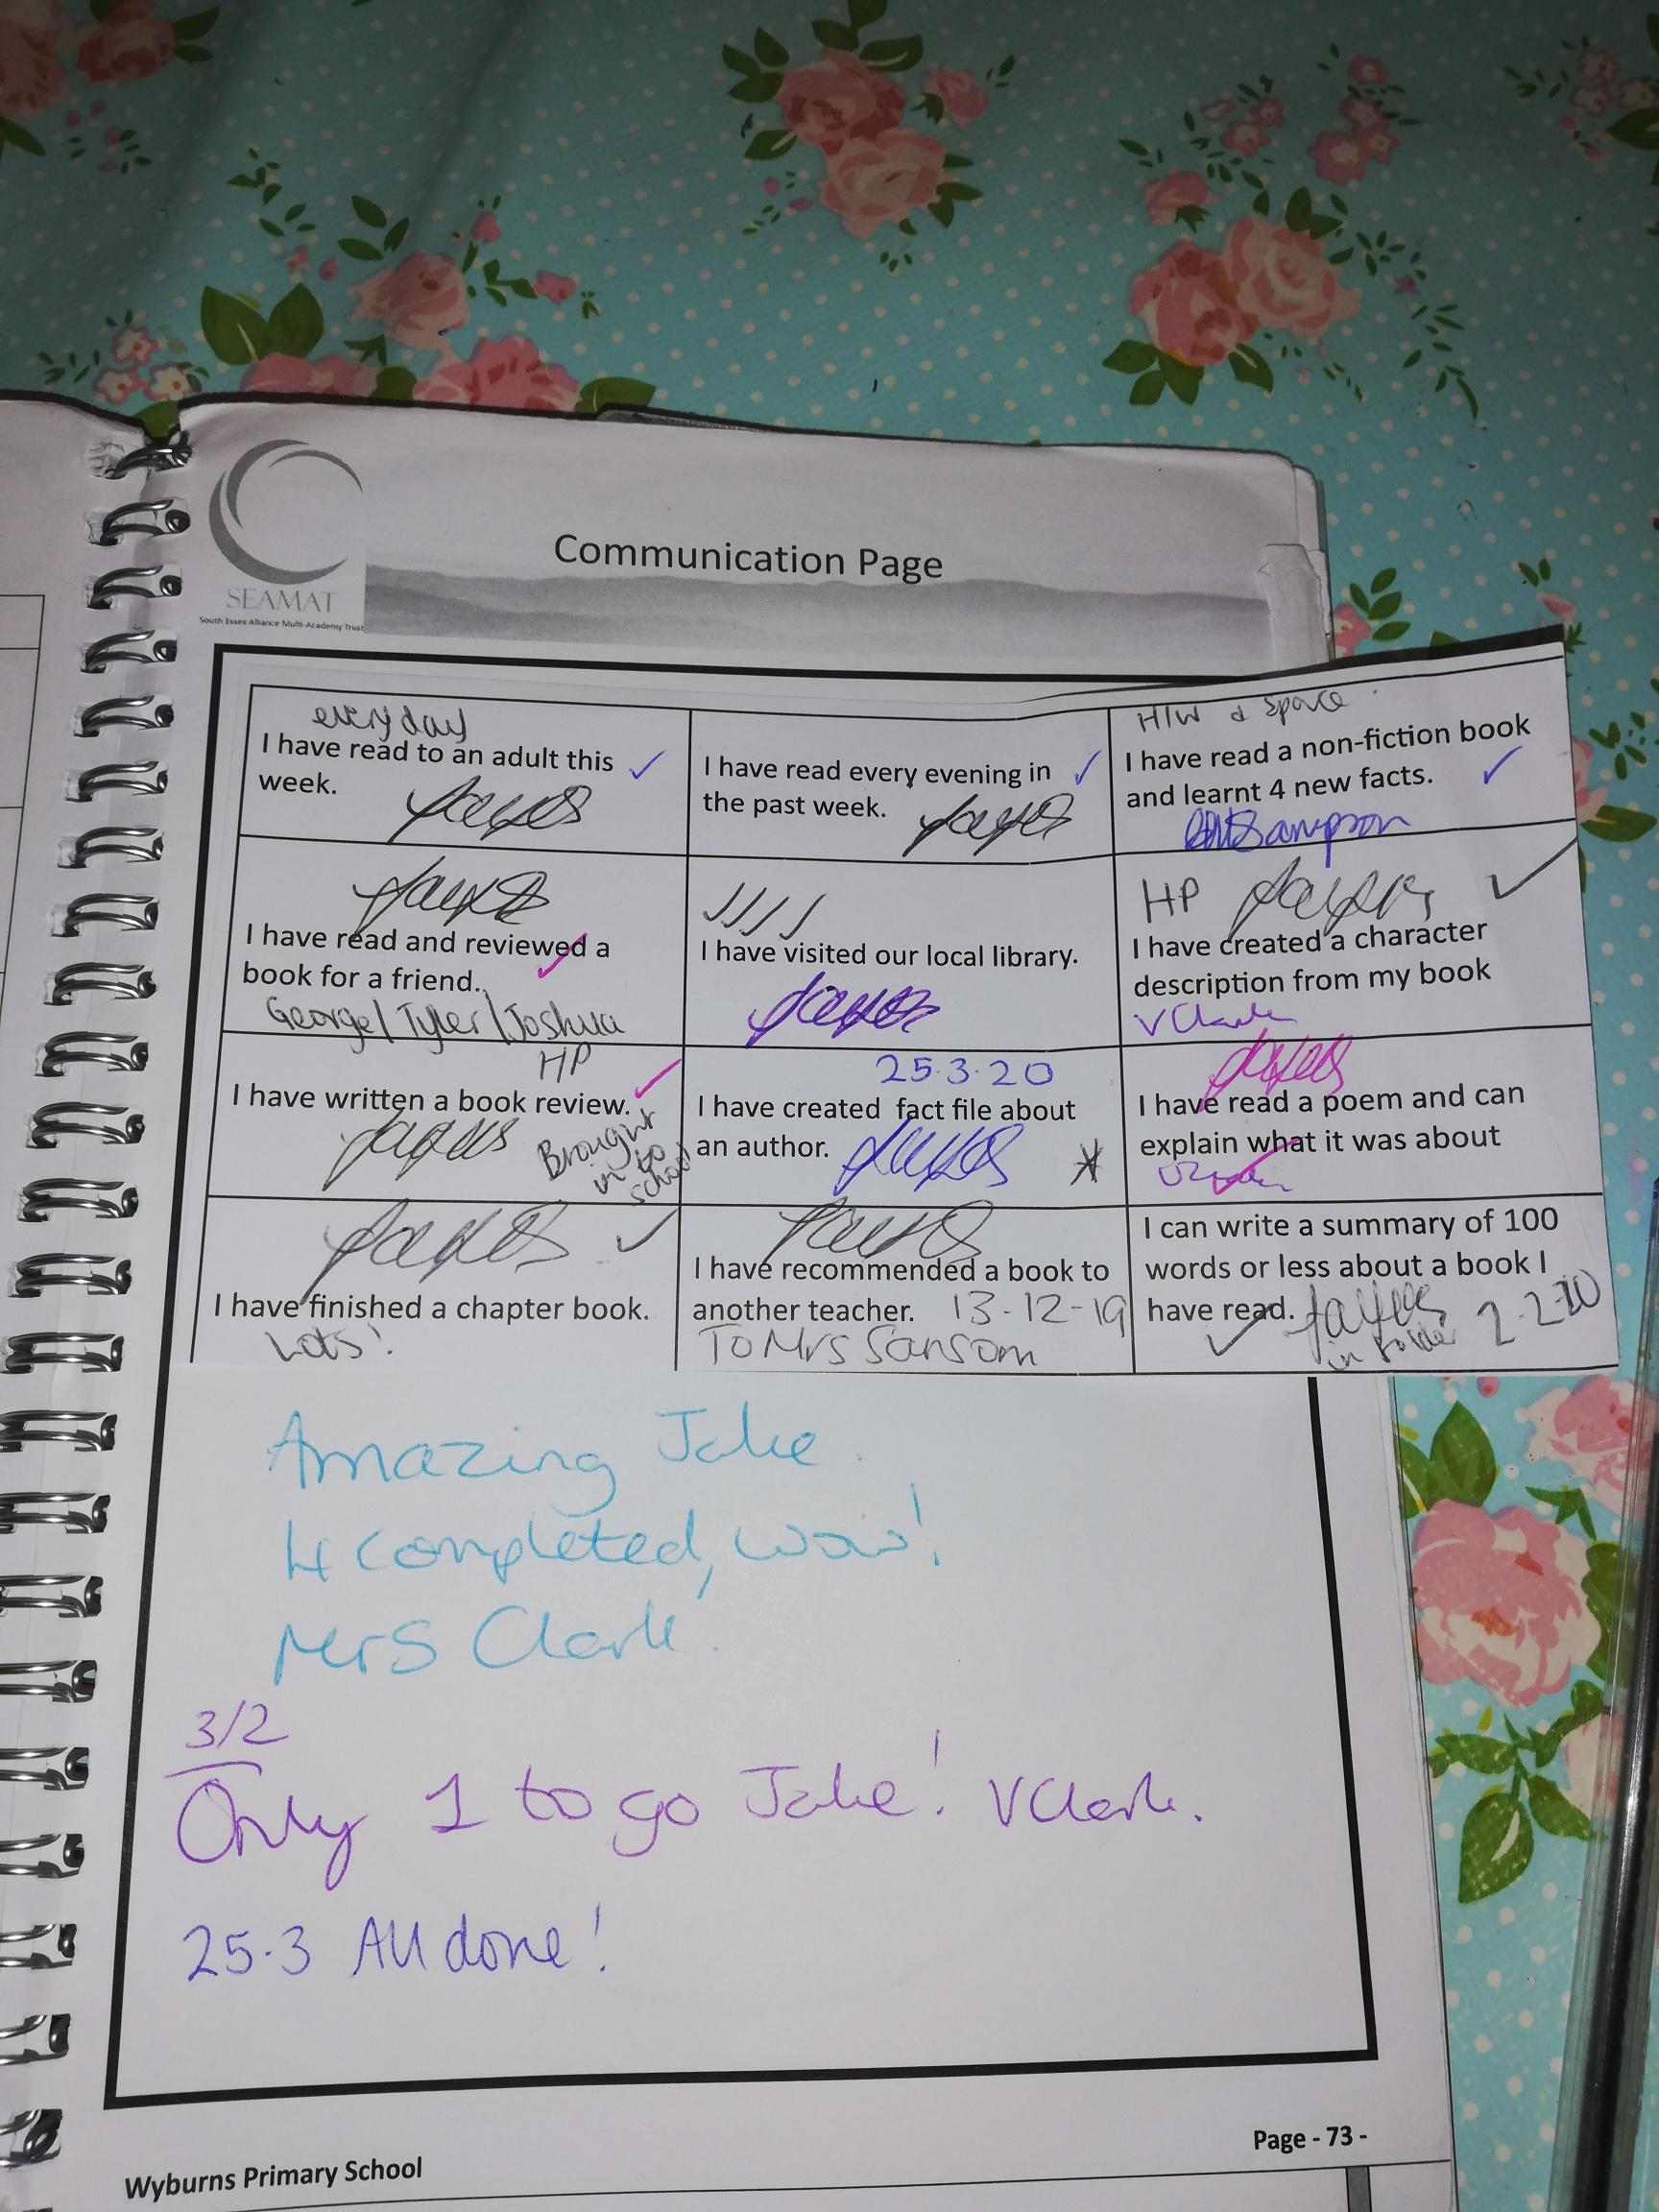 Communication Page
SEAMAT
South Essex Alliance Multi-Academy Trust
every day
I have read to an adult this
week.
I have read every evening in
the past week.
H/W & Space
I have read a non-fiction book
and learnt 4 new facts.
I have read and reviewed a
book for a friend.
George/Tyler/Joshua
I have visited our local library.
HP
I have created a character
description from my book
V Clark
HP
I have written a book review.
Brought
in to
school
25.3.20
I have created fact file about
an author.
I have read a poem and can
explain what it was about
I have finished a chapter book.
Lots!
I have recommended a book to
another teacher. 13-12-19
To Mrs Sansom
I can write a summary of 100
words or less about a book I
have read.
in folder 2-2-20
Amazing Jake.
4 completed, wow!
Mrs Clark.
3/2
Only 1 to go Jake! V Clark.
25.3 All done!
Page - 73 -
Wyburns Primary School